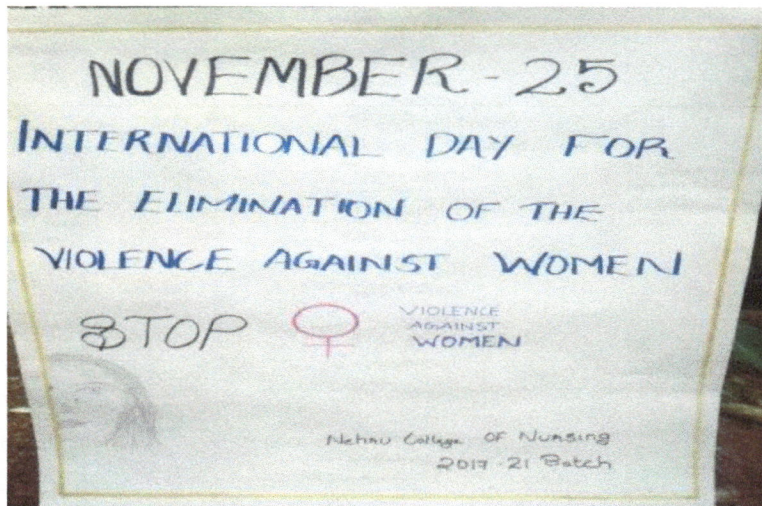 NOVEMBER - 25
INTERNATIONAL DAY FOR
THE ELIMINATION OF THE
VIOLENCE AGAINST WOMEN
STOP
VIOLENCE
AGAINST
WOMEN
Nehru College OF Nursing
2017-21 Batch